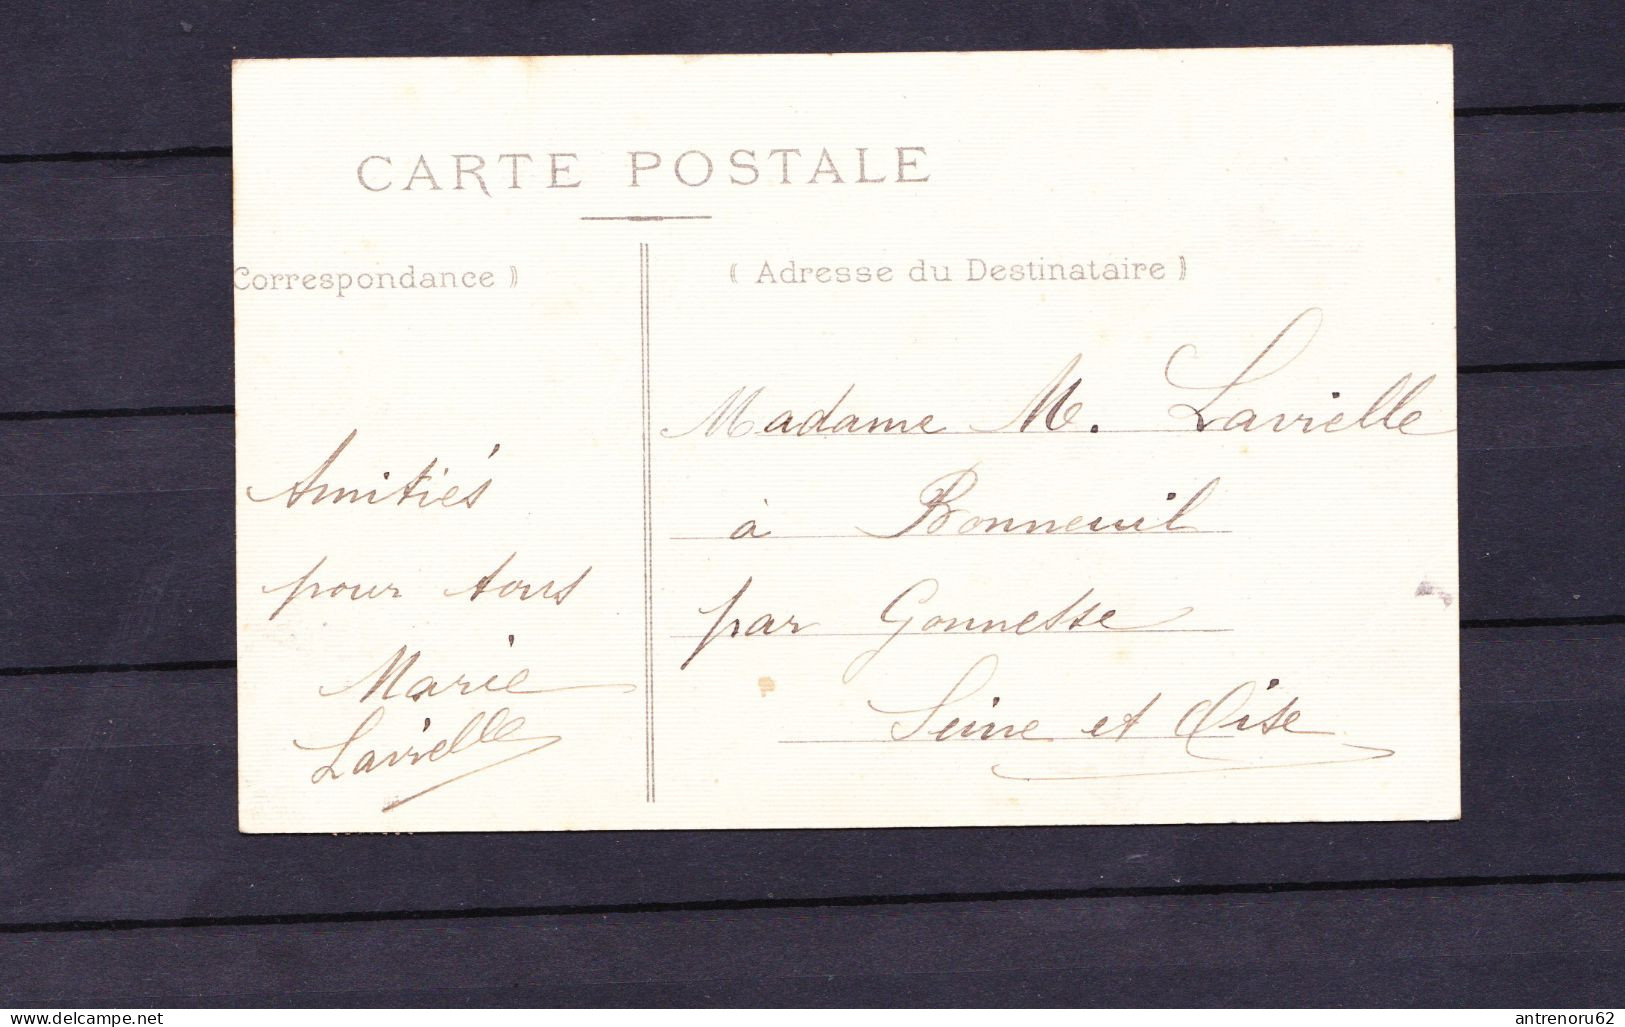 CARTE POSTALE
Correspondance )
( Adresse du Destinataire )
Amitiés
pour tous
Marie
Lavielle
Madame M. Lavielle
à Bonneuil
par Gonnesse
Seine et Oise
www.delcampe.net
antrenoru62